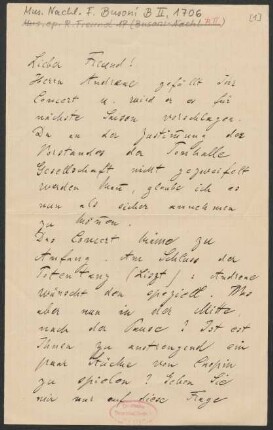 Mus. Nachl. F. Busoni B II, 1706
[1]
Lieber Freund!
Herrn Andreae gefällt Ihr
Concert u. wird er es für
nächste Saison vorschlagen.
Da an der Zustimmung des
Vorstandes der Tonhalle
Gesellschaft nicht gezweifelt
werden kann, glaube ich es
nun als sicher annehmen
zu können.
Das Concert käme zu
Anfang. Am Schluss der
Totentanz (Liszt); Andreae
wünscht den speziell. Was
aber nun in der Mitte,
nach der Pause? Ist es
Ihnen zu anstrengend ein
paar Stücke von Chopin
zu spielen? Geben Sie
mir nur auf diese Frage